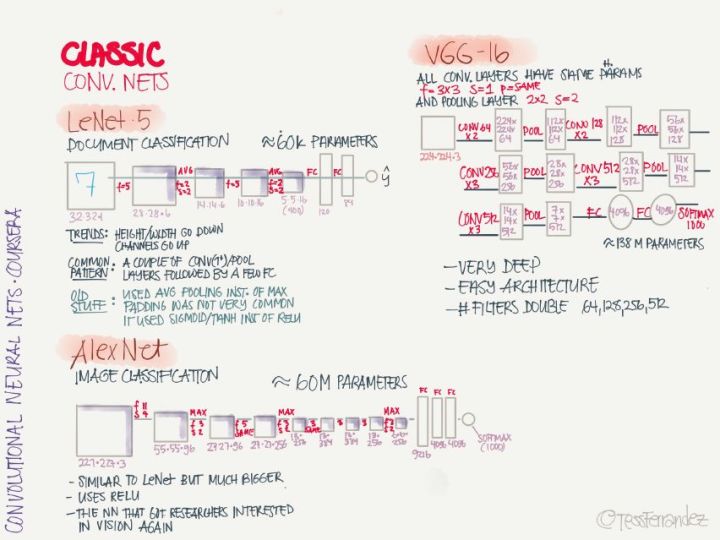 CLASSIC
CONV. NETS
LeNet-5
DOCUMENT CLASSIFICATION ≈60K PARAMETERS
7
f=5
AVG
f=2
s=2
f=5
AVG
f=2
s=2
FC
FC
ŷ
32·32·1
28·28·6
14·14·6
10·10·16
5·5·16
(400)
120
84
TRENDS: HEIGHT/WIDTH GO DOWN
CHANNELS GO UP
COMMON PATTERN: A COUPLE OF CONV(1+)/POOL
LAYERS FOLLOWED BY A FEW FC
OLD STUFF: USED AVG POOLING INST. OF MAX
PADDING WAS NOT VERY COMMON
IT USED SIGMOID/TANH INST OF RELU
AlexNet
IMAGE CLASSIFICATION ≈ 60M PARAMETERS
f 11
s 4
MAX
f 3
s 2
f 5
SAME
MAX
f 3
s 2
3
SAME
3
3
MAX
FC FC FC
227·227·3
55·55·96
27·27·96
27·27·256
13·
384
13·
384
13·
256
9216
4096 4096
SOFTMAX
(1000)
- SIMILAR TO LeNet BUT MUCH BIGGER
- USES RELU
- THE NN THAT GOT RESEARCHERS INTERESTED
IN VISION AGAIN
VGG-16
ALL CONV. LAYERS HAVE SAME PARAMS
f=3X3 S=1 P=SAME
AND POOLING LAYER 2X2 S=2
224·224·3
CONV 64
X2
224×
224×
64
POOL
112×
112×
64
CONV 128
X2
112×
112×
128
POOL
56×
56×
128
CONV 256
X3
56×
56×
256
POOL
28×
28×
256
CONV 512
X3
28×
28×
512
POOL
14×
14×
512
CONV 512
X3
14×
14×
512
POOL
7×
7×
512
FC
4096
FC
4096
SOFTMAX
1000
≈138 M PARAMETERS
- VERY DEEP
- EASY ARCHITECTURE
- # FILTERS DOUBLE 64,128,256,512
CONVOLUTIONAL NEURAL NETS · COURSERA
@TessFerrandez